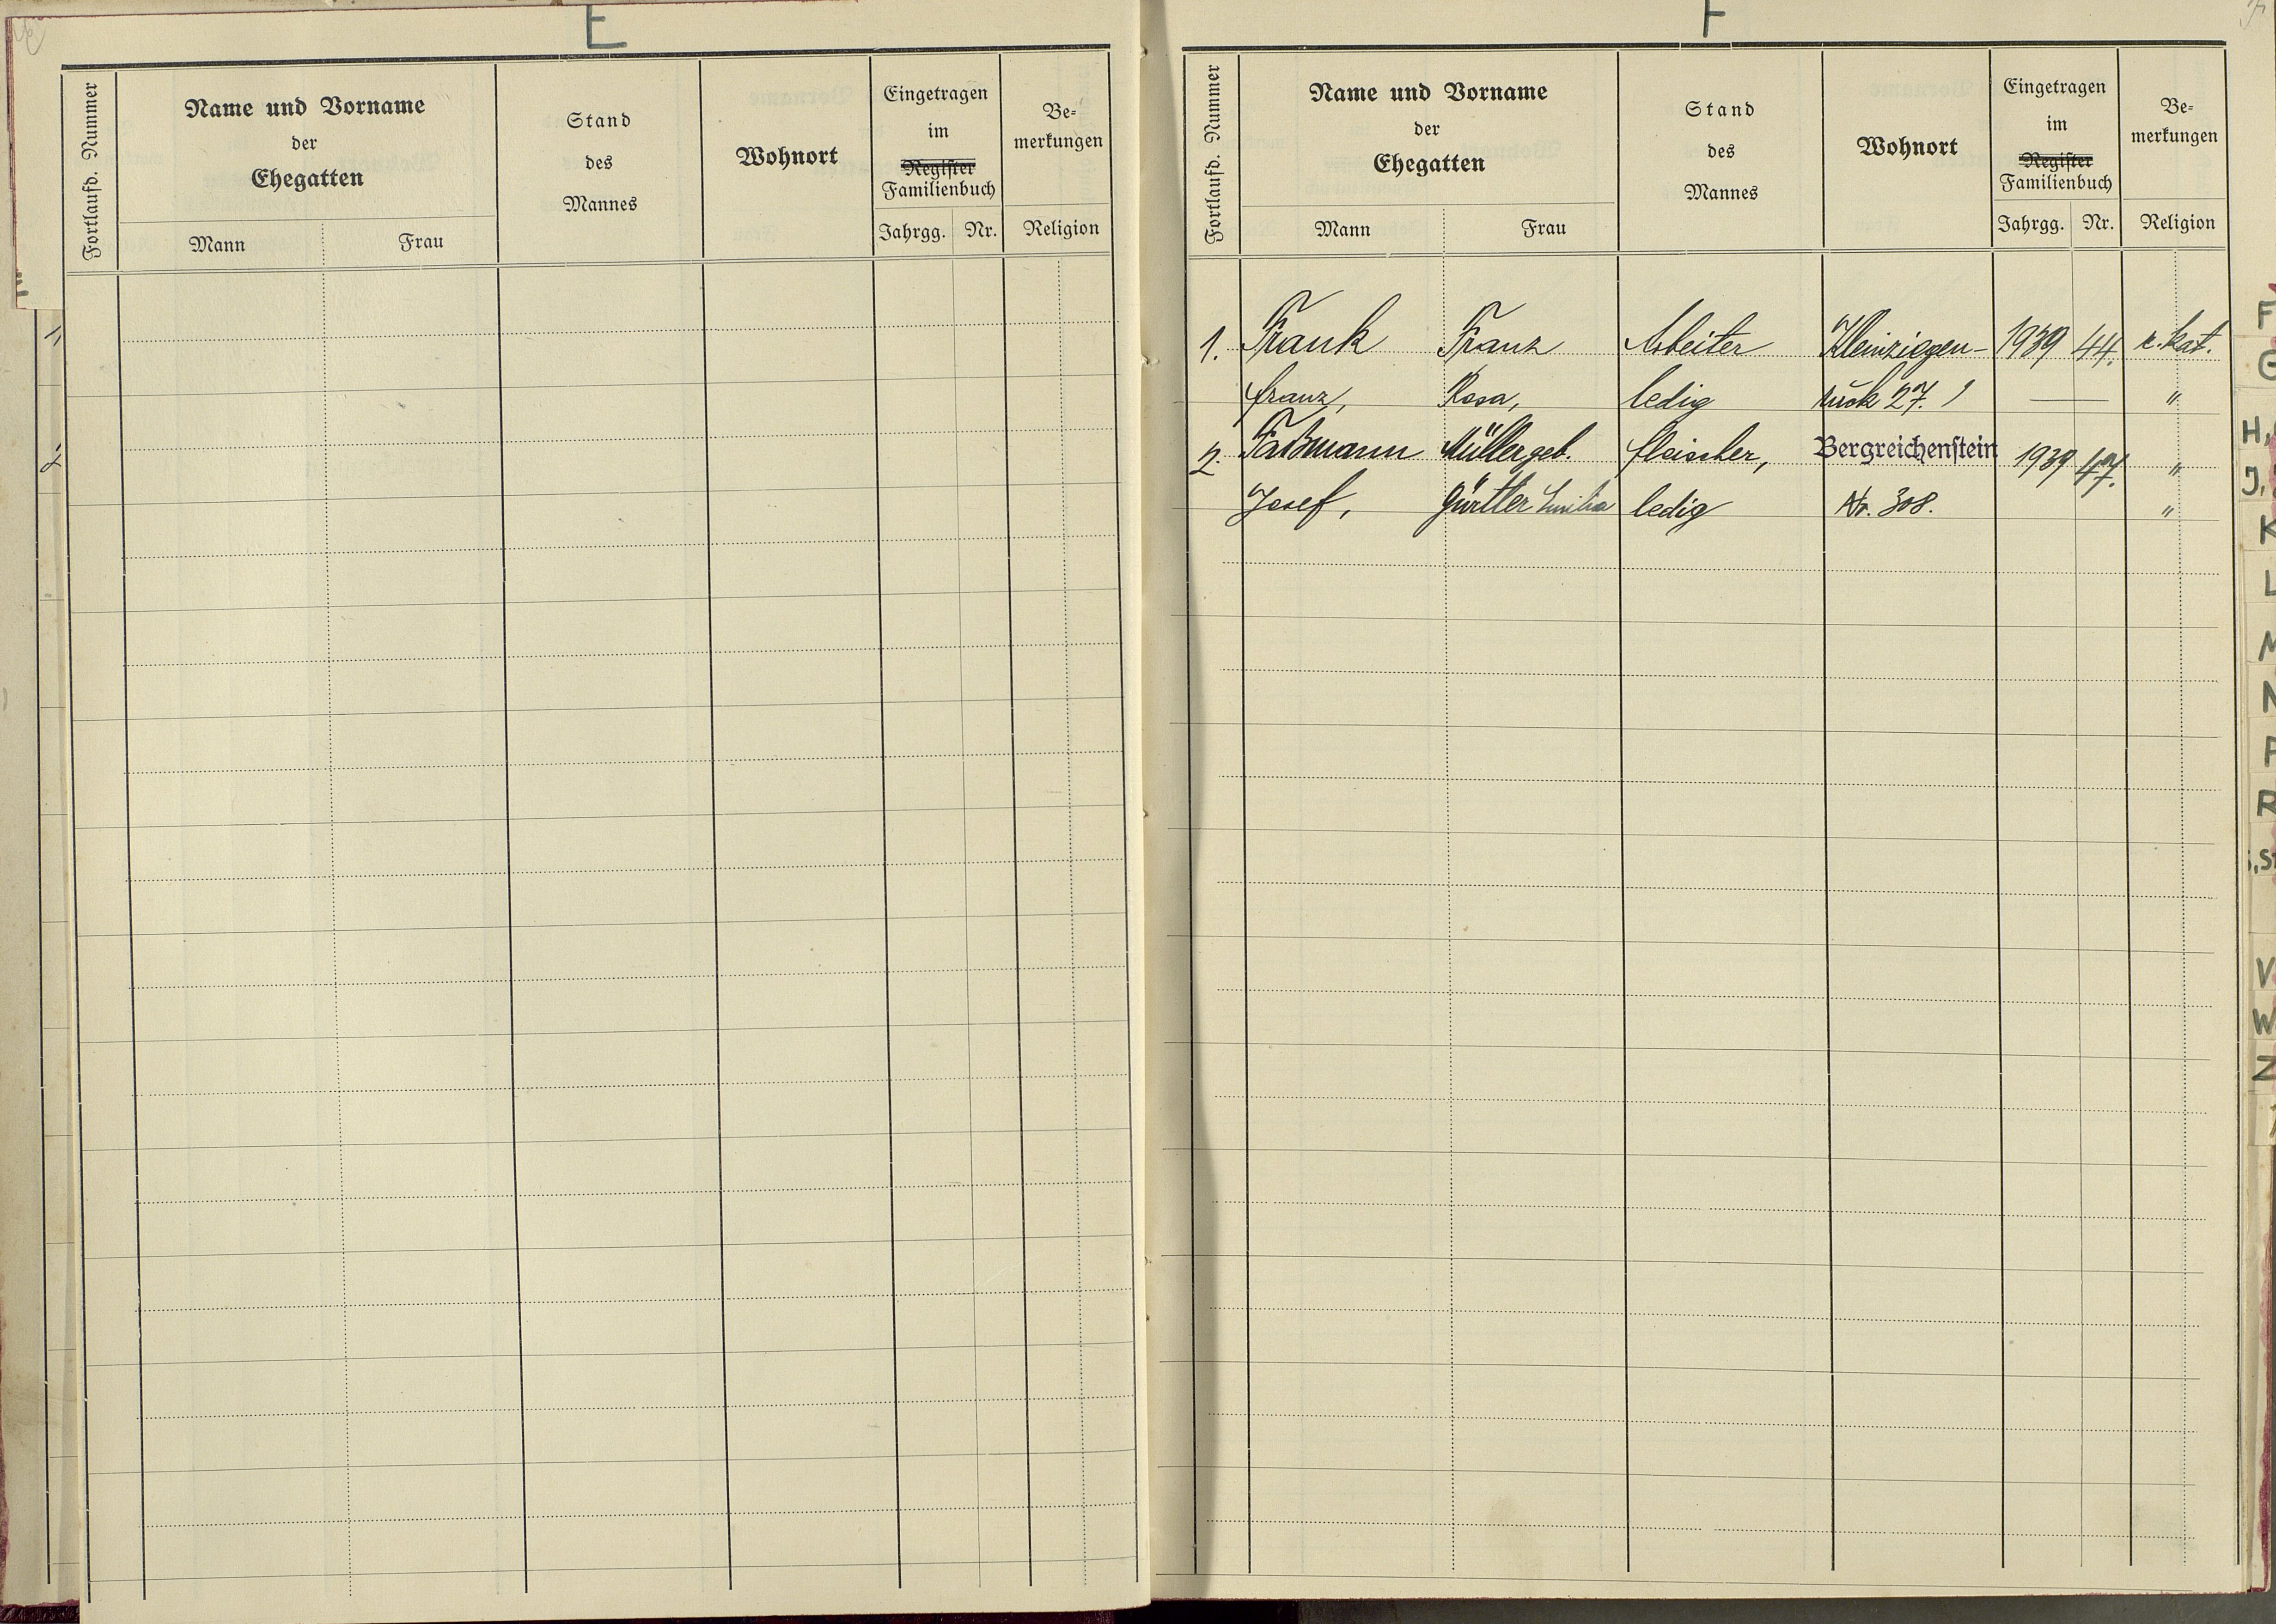 E
Fortlaufd. Nummer
Name und Vorname
der
Ehegatten
Mann
Frau
Stand
des
Mannes
Wohnort
Eingetragen
im
Register
Familienbuch
Jahrgg.
Nr.
Be-
merkungen
Religion
1,
2
F
Fortlaufd. Nummer
Name und Vorname
der
Ehegatten
Mann
Frau
Stand
des
Mannes
Wohnort
Eingetragen
im
Register
Familienbuch
Jahrgg.
Nr.
Be-
merkungen
Religion
1. Frank Franz Arbeiter Kleinziegen- 1939 44. r. kat.
Franz, Rosa, ledig ruck 27. — "
2. Faßmann Müller geb. Fleischer, Bergreichenstein 1939 47. "
Josef, Gürtler Emilia ledig Nr. 308. "
F
G
H,
J,
K
L
M
N
P
R
S,St
V
W
Z